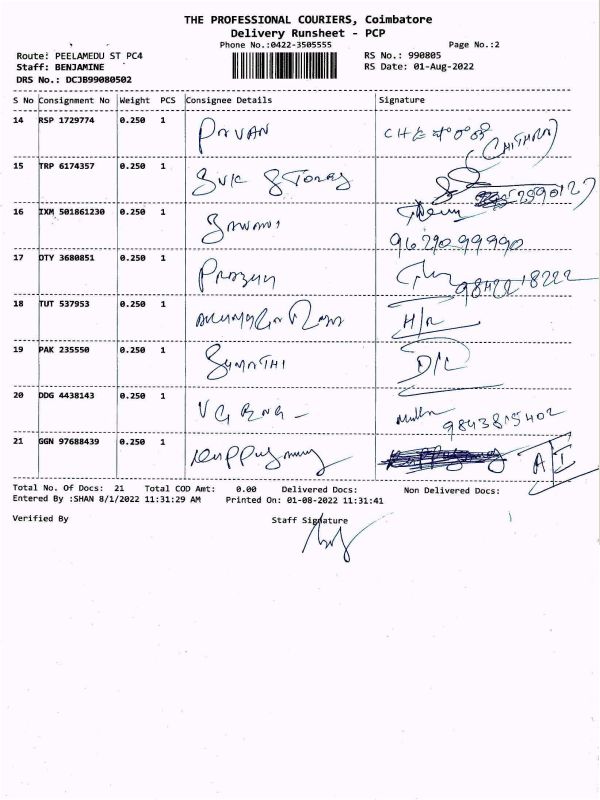 THE PROFESSIONAL COURIERS, Coimbatore
Delivery Runsheet - PCP
Phone No.:0422-3505555 Page No.:2
Route: PEELAMEDU ST PC4 RS No.: 990805
Staff: BENJAMINE RS Date: 01-Aug-2022
DRS No.: DCJB99080502
S No Consignment No Weight PCS Consignee Details Signature
14 RSP 1729774 0.250 1 PAVAN
(CHITHRA)
15 TRP 6174357 0.250 1 SVK Stores
16 IXM 501861230 0.250 1
9629099990
17 DTY 3680851 0.250 1 9842218222
18 TUT 537953 0.250 1 H/R
19 PAK 235550 0.250 1 SUMATHI D/L
20 DDG 4438143 0.250 1 VG ENG -
9843815402
21 GGN 97688439 0.250 1 AI
Total No. Of Docs: 21 Total COD Amt: 0.00 Delivered Docs: Non Delivered Docs:
Entered By :SHAN 8/1/2022 11:31:29 AM Printed On: 01-08-2022 11:31:41
Verified By Staff Signature